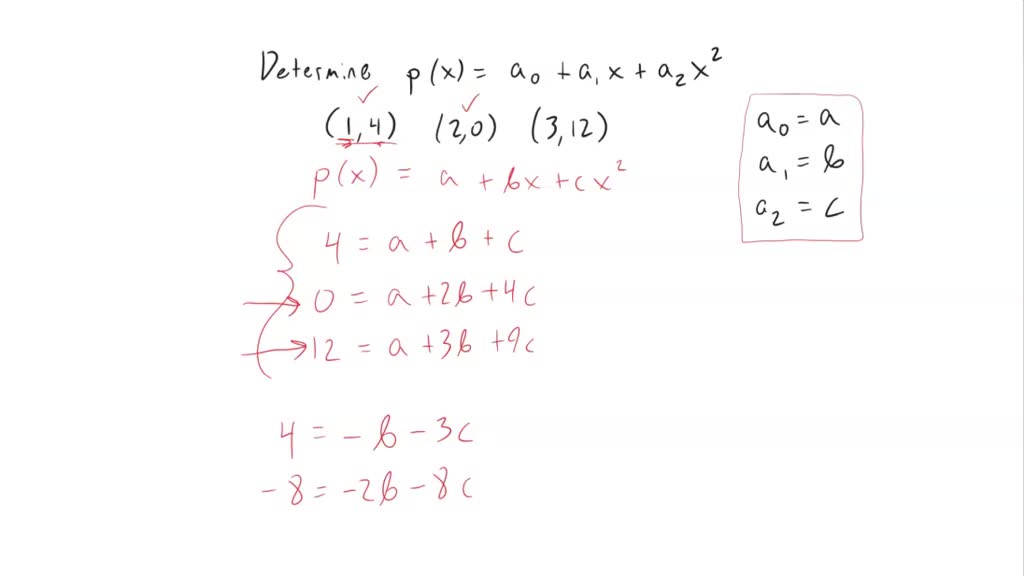 Determine p(x) = a₀ + a₁x + a₂x²
(1,4) (2,0) (3,12)
p(x) = a + bx + cx²
4 = a + b + c
0 = a + 2b + 4c
12 = a + 3b + 9c
4 = -b - 3c
-8 = -2b - 8c
a₀ = a
a₁ = b
a₂ = c